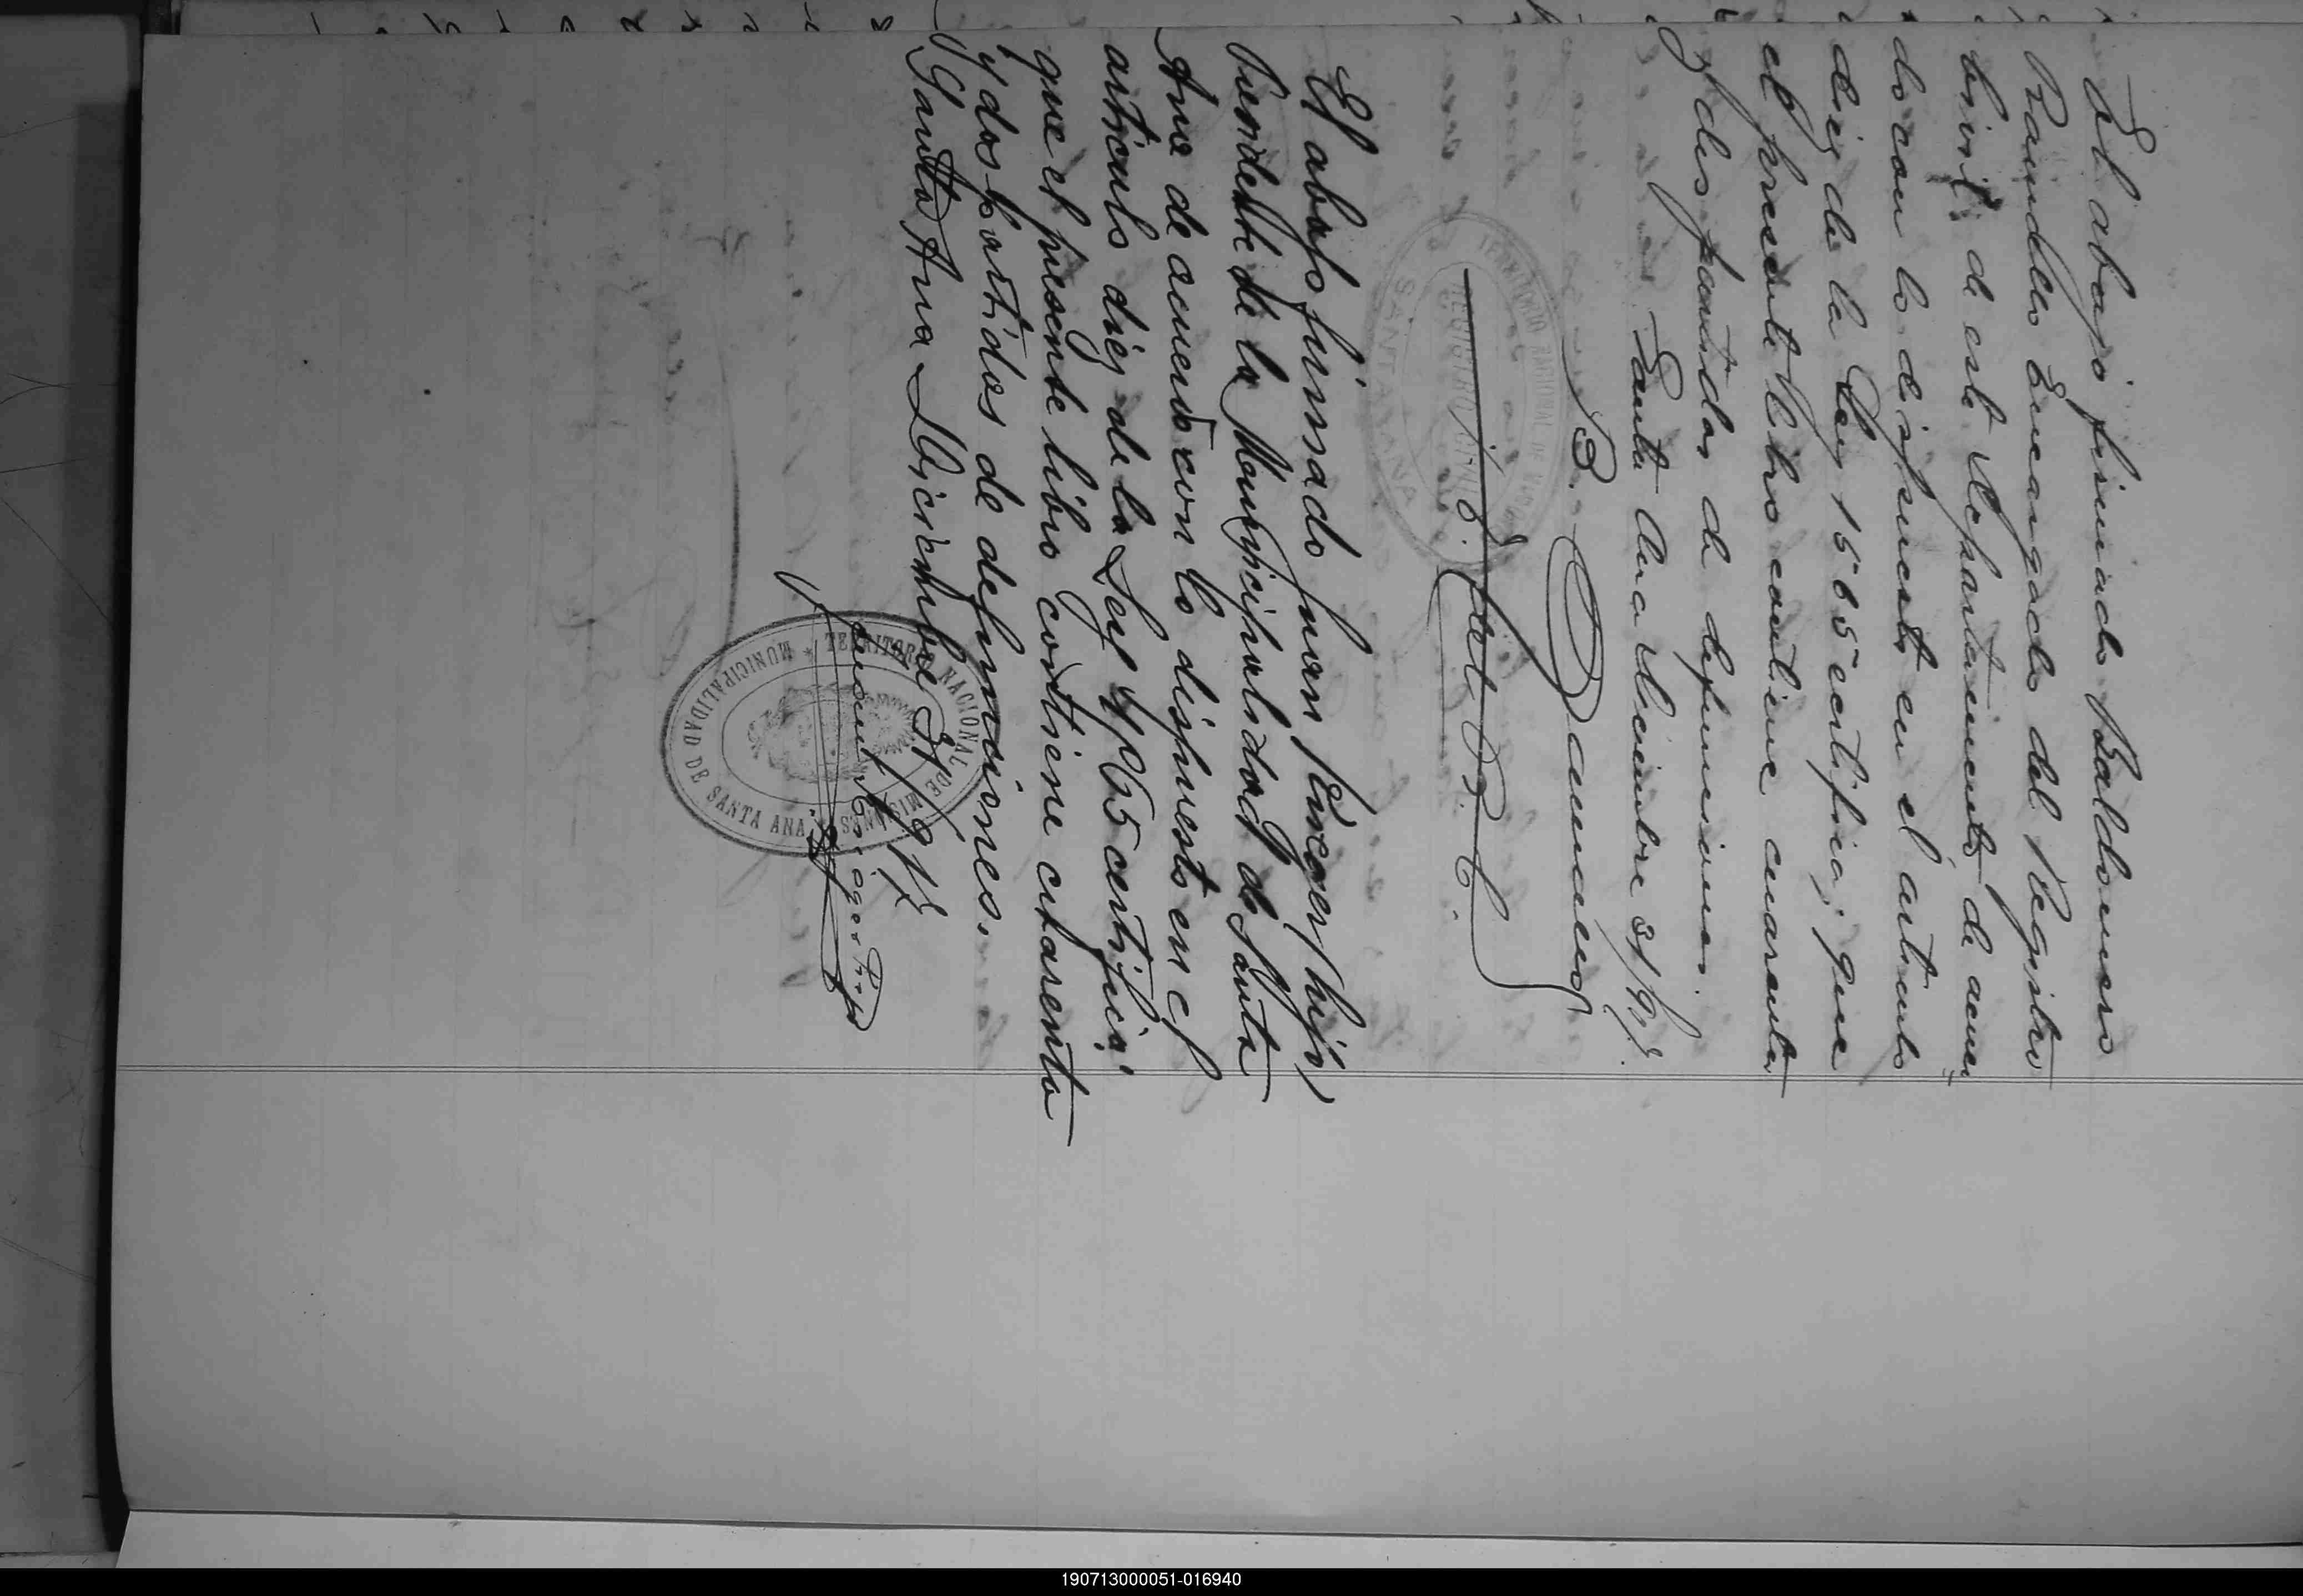 El abajo firmado Baldomero
Encargado del Registro
Civil de este Departamento de acuer
do con lo dispuesto en el artículo
diez de la Ley 1565 certifica; que
el presente libro contiene cuarenta
y dos partidas de defunciones.
Santa Ana Diciembre 31/917.
TERRITORIO NACIONAL DE MISIONES
REGISTRO CIVIL
SANTA ANA
El abajo firmado Juan (hijo)
Presidente de la Municipalidad de Santa
Ana de acuerdo con lo dispuesto en el
artículo diez de la Ley 1565 certifica:
que el presente libro contiene cuarenta
y dos partidas de defunciones.
Santa Ana Diciembre 31/917
TERRITORIO NACIONAL DE MISIONES
MUNICIPALIDAD DE SANTA ANA
190713000051-016940